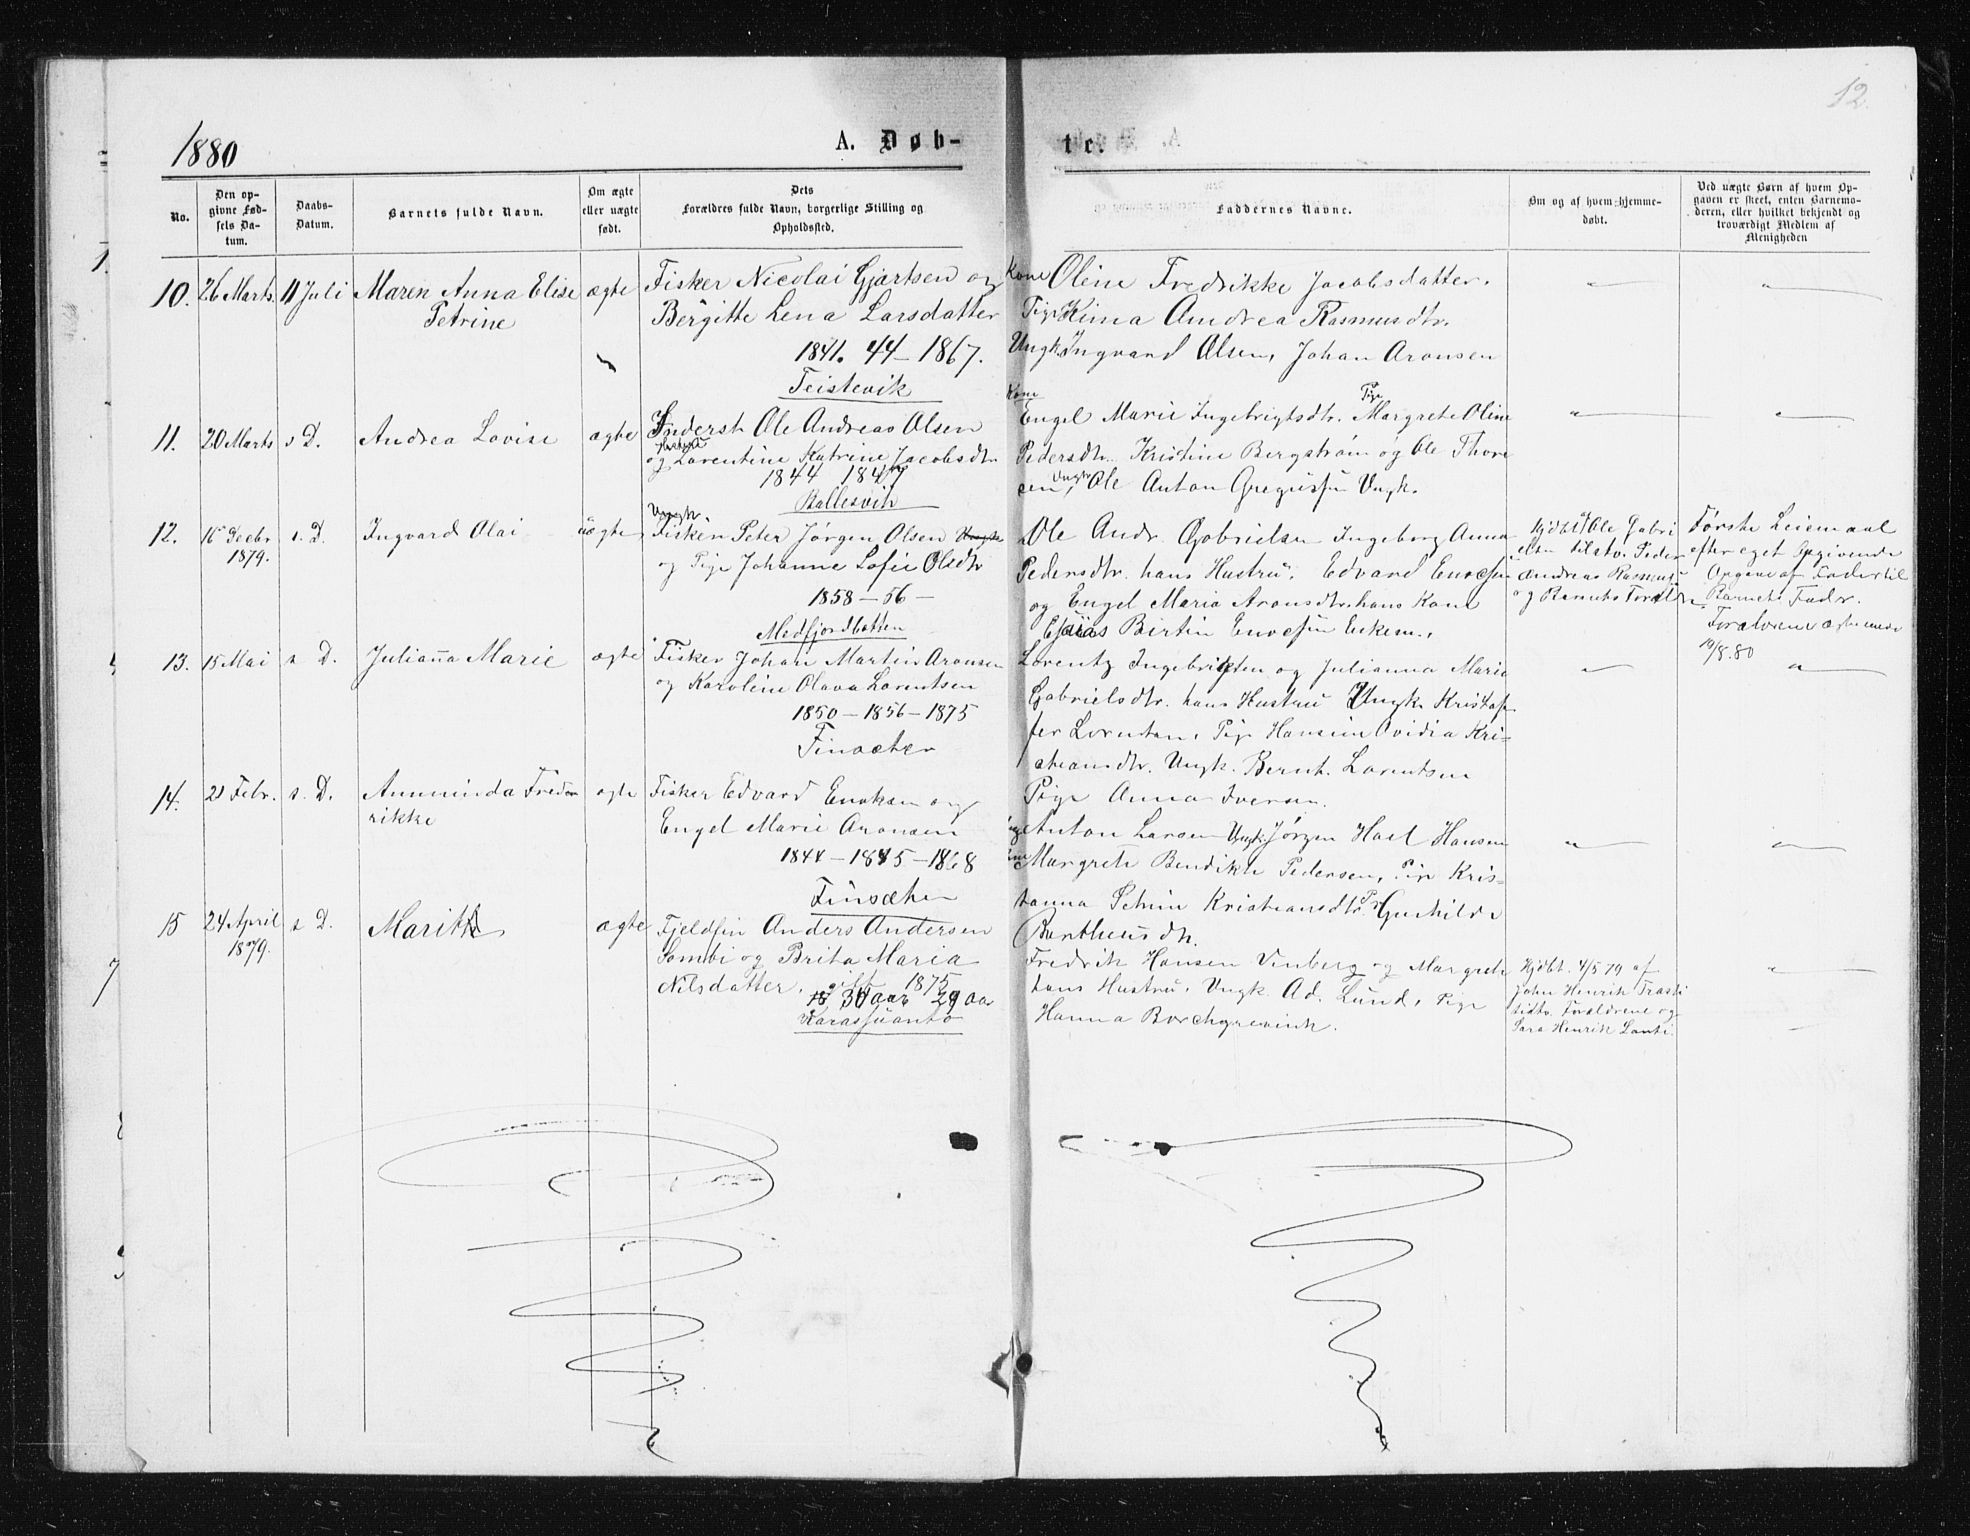 12.
1880
A. Døb-
te.
No.
Den op-
givne Fød-
sels Da-
tum.
Daabs-
Datum.
Barnets fulde Navn.
Om ægte
eller uægte
født.
Dets
Forældres fulde Navn, borgerlige Stilling og
Opholdssted.
Faddernes Navne.
Om og af hvem hjemme-
døbt.
Ved uægte Børn af hvem Op-
gaven er skeet, enten Barnemo-
deren, eller hvilket bekjendt og
troværdigt Medlem af
Menigheden
10. 26 Marts 11 Juli Maren Anna Elise
Petrine
ægte
Fisker Nicolai Gjertsen og
Bergitte Lena Larsdatter
1841. 44 - 1867.
Teistevik
Kone Oline Fredrikke Jacobsdatter.
Pige Kima Andrea Rasmusdtr.
Ungk Ingvard Olsen, Johan Aronsen
11. 20 Marts s D. Andrea Lovise ægte
Inderst Ole Andreas Olsen
og Hustru Lorentine Katrine Jacobsdtr
1844 1847
Ballesvik
Kone
Engel Marie Ingebrigtsdtr. Pige Margrete Oline
Pedersdtr. Kristine Bergstrøm og Ole Thor
sen, Ungk Ole Anton Ungk.
12. 16 Decbr
1879.
s. D. Ingvard Olai uægte
Ungk
Fisker Peter Jørgen Olsen
og Pige Johanne Sofie Olsdtr
1858 - 56 -
Medfjordbotten
Ole Andr. Gabrielsen Ingeborg Anna
Pedersdtr. hans Hustru. Edvard Enocsen
og Engel Maria Aronsdtr. hans Kone
Esaias Birtin Enocsen Enkem.
Hjdbt af Ole Gabri
elsen tilstv. Peder
Andreas Rasmus
og Barnets Foreldre
Første Leiemaal
efter eget Opgivende
Opgave af Fader til
Barnets Fader.
Foraldrene
10/8.80
13. 15 Mai s D. Julianna Marie ægte
Fisker Johan Martin Aronsen
og Karoline Olava Lorentsen
1850 - 1856 - 1875
Finsæter
Lorentz Ingebrigtsen og Julianna Marie
Gabrielsdtr. hans Hustru Ungk. Kristof
fer Lorentsen, Pige Hansine Ovidia Kri-
stiansdtr. Ungk. Bernt. Lorentsen
Pige Anna Iversen.
14. 21 Febr. s. D. Annminda Frede
rikke
ægte
Fisker Edvard Enoksen og
Engel Marie Aronsen
1844 - 1845 - 1868
Finsæter
Anton Larsen Ungk. Jørgen Hansen
Margrete Bendikte Pedersen, Pige Kris-
tanna Kristiansdtr Pige Gunhilde
Bertheusdtr.
15 24 April
1879.
s D. Marit ægte
Fjeldfin Anders Andersen
Sombi og Brita Maria
Nilsdatter. gift 1875
30 aar 29 aar
Karasjuanto
Fredrik Hansen Vinberg og Margrete
hans Hustru, Ungk. Ad. Lund, Pige
Hanna Borchgrevink.
Hjdbt. 4/5 79 af
John Henrik Trasti
tilstv. Foraldrene og
Sara Henrik Lanti.